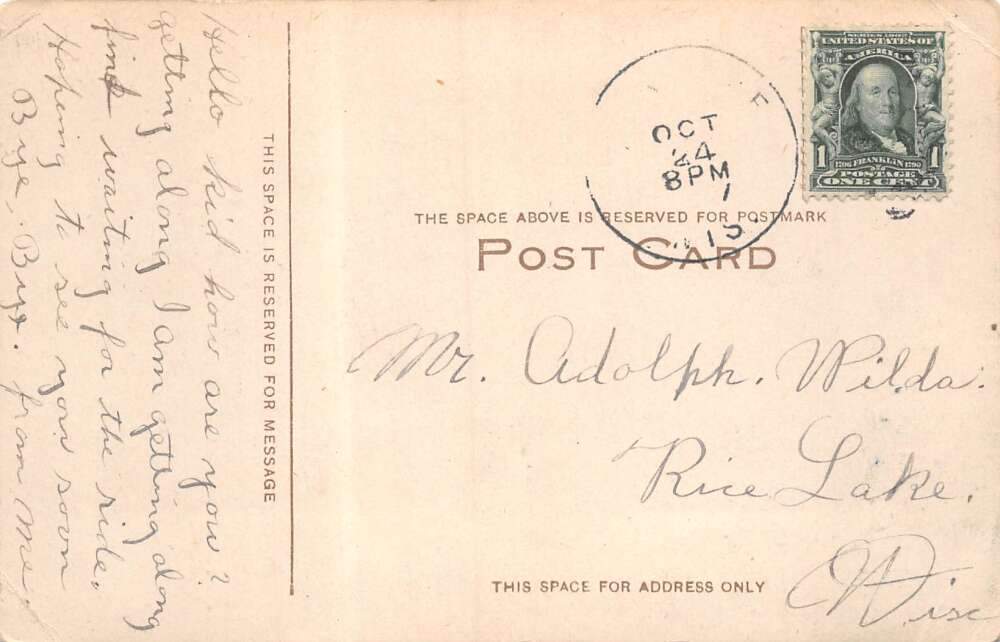 Hello kid how are you?
getting along I am getting along
fine waiting for the ride.
Hopeing to see you soon
Bye. Bye. from Me.
THIS SPACE IS RESERVED FOR MESSAGE
OCT
24
8PM
WIS
SERIES 1902
UNITED STATES OF
AMERICA
1706 FRANKLIN 1790
1 POSTAGE 1
ONE CENT
THE SPACE ABOVE IS RESERVED FOR POSTMARK
POST CARD
Mr. Adolph. Wilda.
Rice Lake.
Wisc
THIS SPACE FOR ADDRESS ONLY